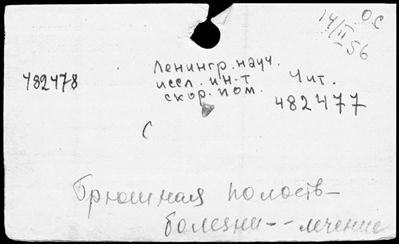 О.С
14/II-56
Ленингр. науч.
482478 иссл. ин-т Чит.
скор. пом. 482477
С
Брюшная полость-
болезни--лечение